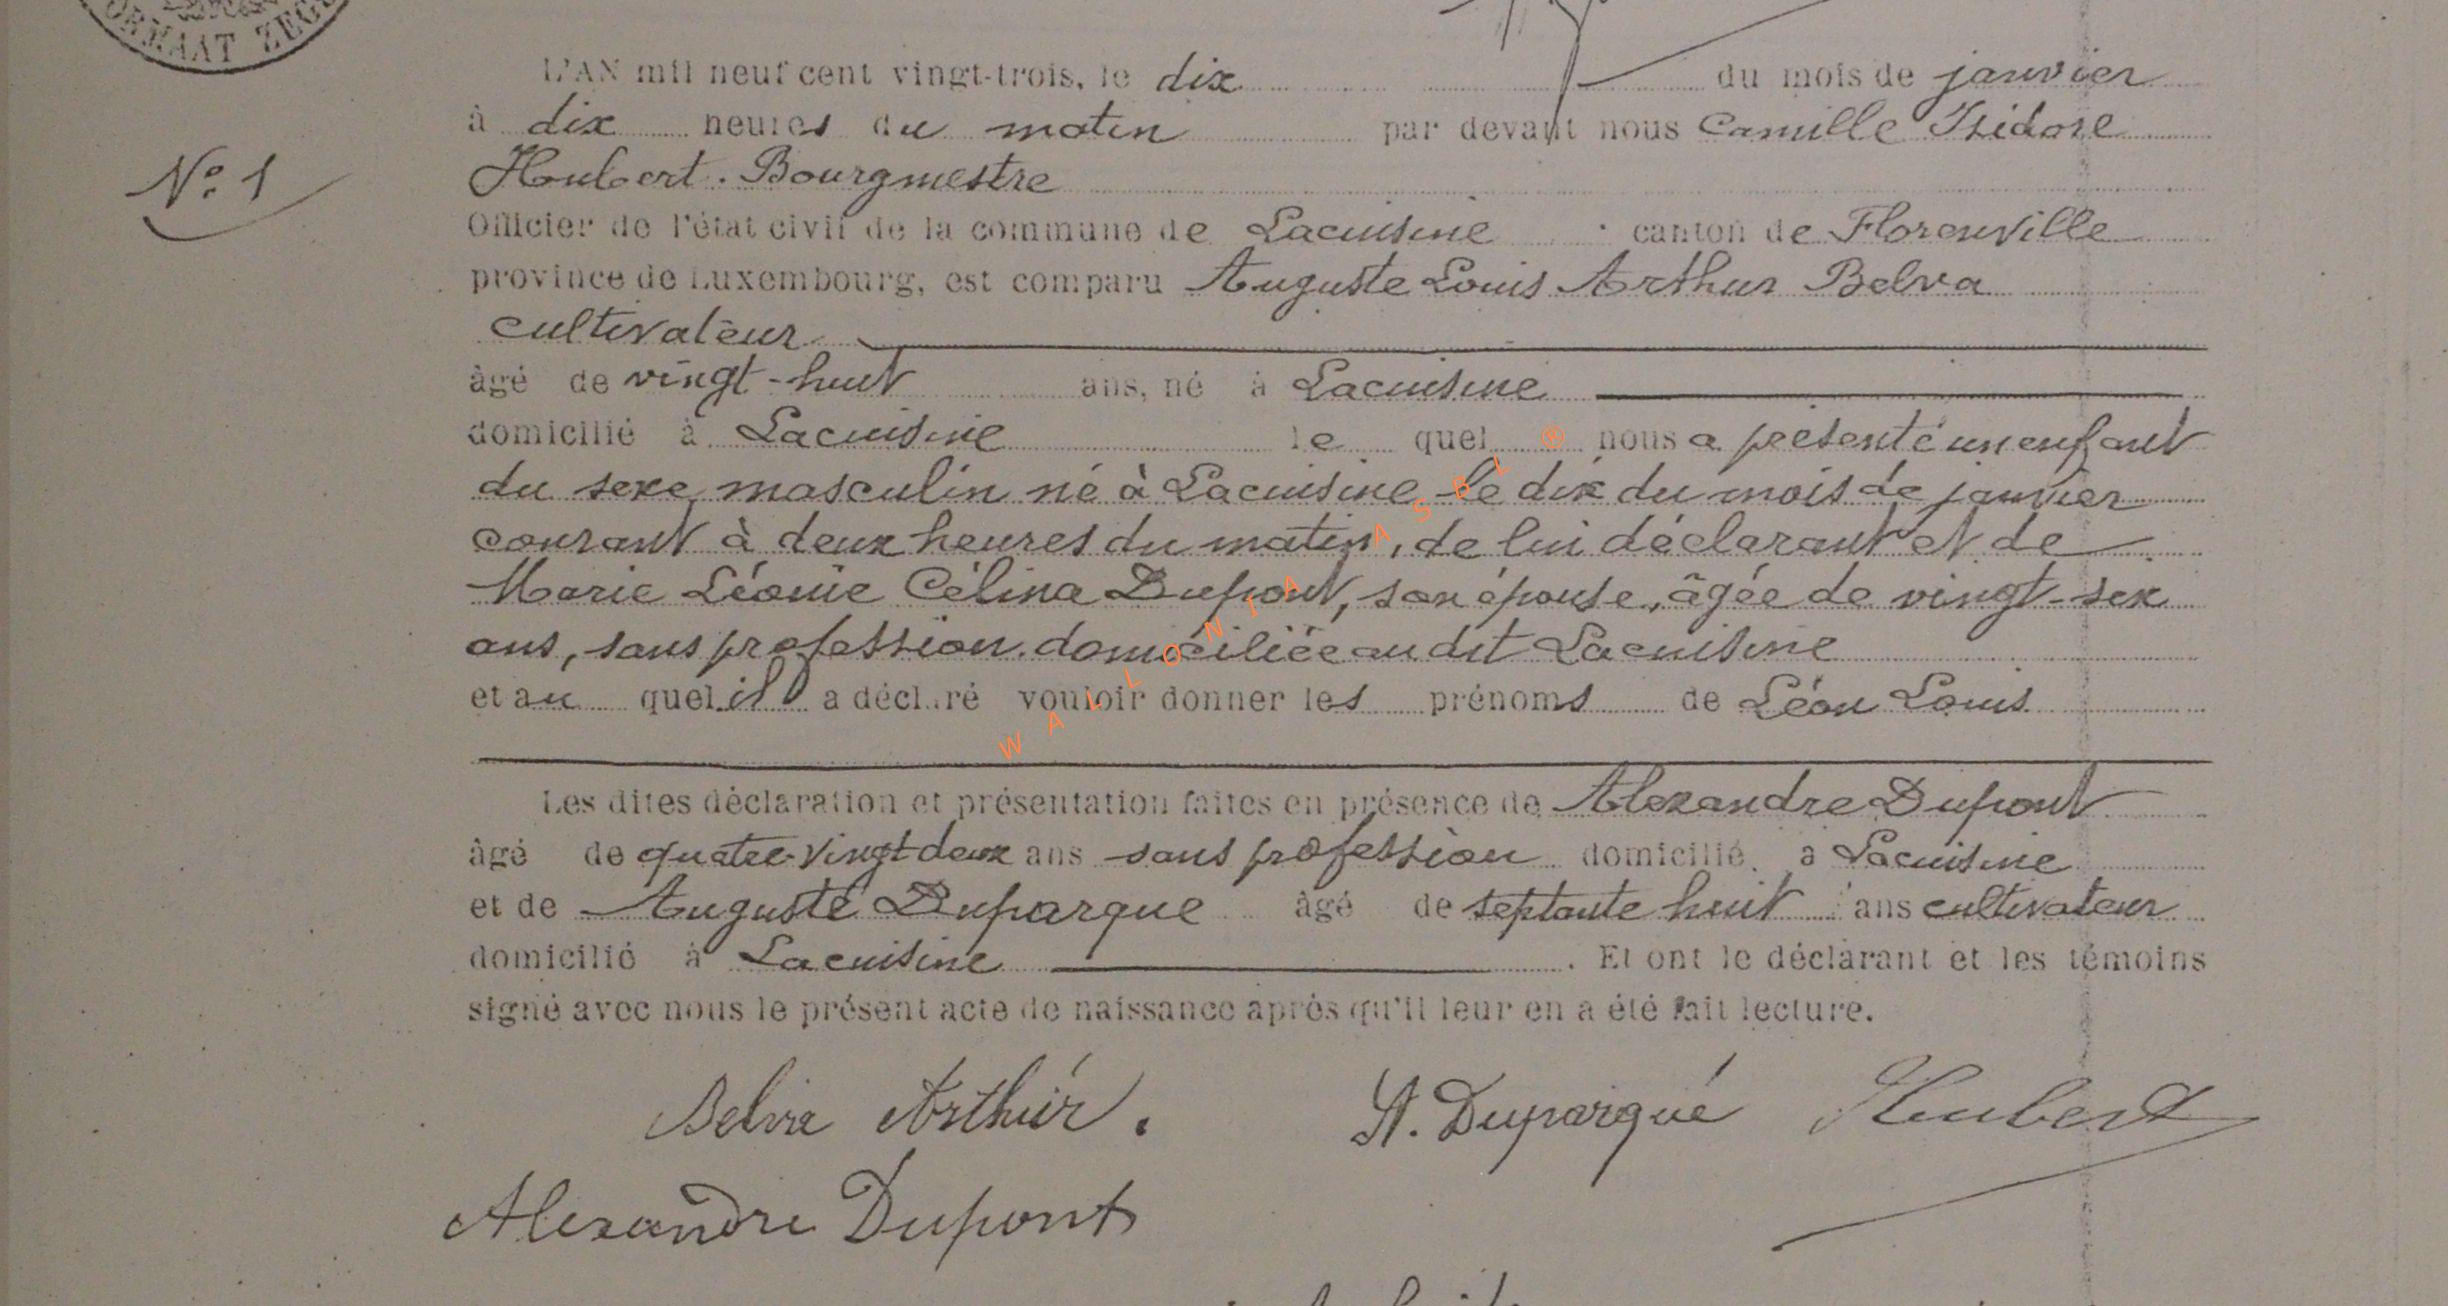 ORMAAT ZEGE
L'AN mil neuf cent vingt-trois, le dix du mois de janvier
à dix heures du matin par devant nous Camille Isidore
N° 1
Hubert. Bourgmestre
Officier de l'état civil de la commune de Lacuisine canton de Florenville
province de Luxembourg, est comparu Auguste Louis Arthur Belva
cultivateur
âgé de vingt-huit ans, né à Lacuisine
domicilié à Lacuisine le quel nous a présenté un enfant
du sexe masculin né à Lacuisine le dix du mois de janvier
courant à deux heures du matin, de lui déclarant et de
Marie Léonie Célina Dupont, son épouse, âgée de vingt-six
ans, sans profession, domiciliée au dit Lacuisine
et au quel il a déclaré vouloir donner les prénoms de Léon Louis
WALLONIA ASBL ®
Les dites déclaration et présentation faites en présence de Alexandre Dupont
âgé de quatre-vingt deux ans sans profession domicilié à Lacuisine
et de Auguste Duparque âgé de septante huit ans cultivateur
domicilié à Lacuisine. Et ont le déclarant et les témoins
signé avec nous le présent acte de naissance après qu'il leur en a été fait lecture.
Belva Arthur. A. Duparque Hubert
Alexandre Dupont